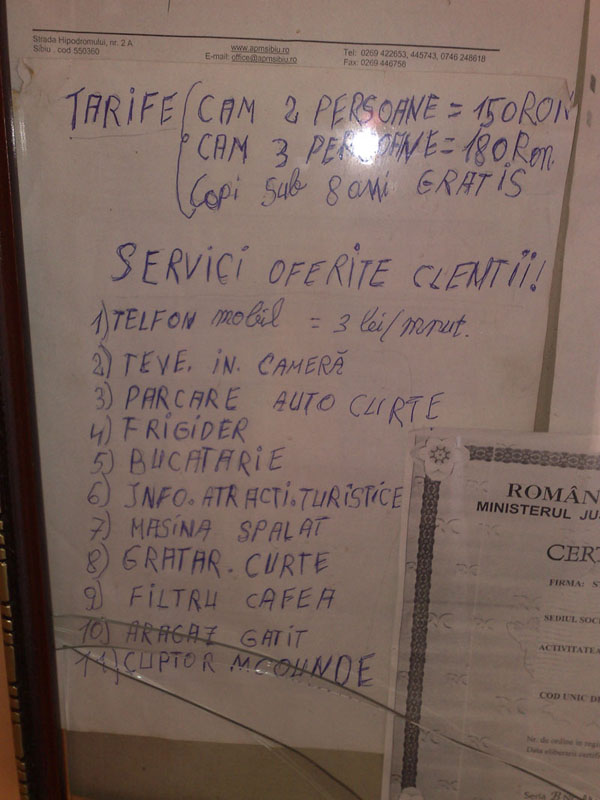 Strada Hipodromului, nr. 2 A
Sibiu . cod 550360
www.apmsibiu.ro
E-mail: office@apmsibiu.ro
Tel: 0269 422653, 445743, 0746 248618
Fax: 0269 446758
TARIFE CAM 2 PERSOANE = 150 RON
CAM 3 PERSOANE = 180 Ron.
Copi sub 8 ani GRATIS
SERVICI OFERITE CLENTII!
1) TELFON mobil = 3 lei/mnut.
2) TEVE. IN. CAMERĂ
3) PARCARE AUTO CURTE
4) FRIGIDER
5) BUCATARIE
6) INFO. ATRACTI. TURISTICE
7) MASINA SPALAT
8) GRATAR. CURTE
9) FILTRU CAFEA
10) ARAGAZ GATIT
11) CUPTOR MCOUNDE
ROMÂN
MINISTERUL JU
CERT
FIRMA:
SEDIUL SOC
ACTIVITATEA
COD UNIC DE
Nr. de ordine in regi
Data eliberarii certifi
Seria